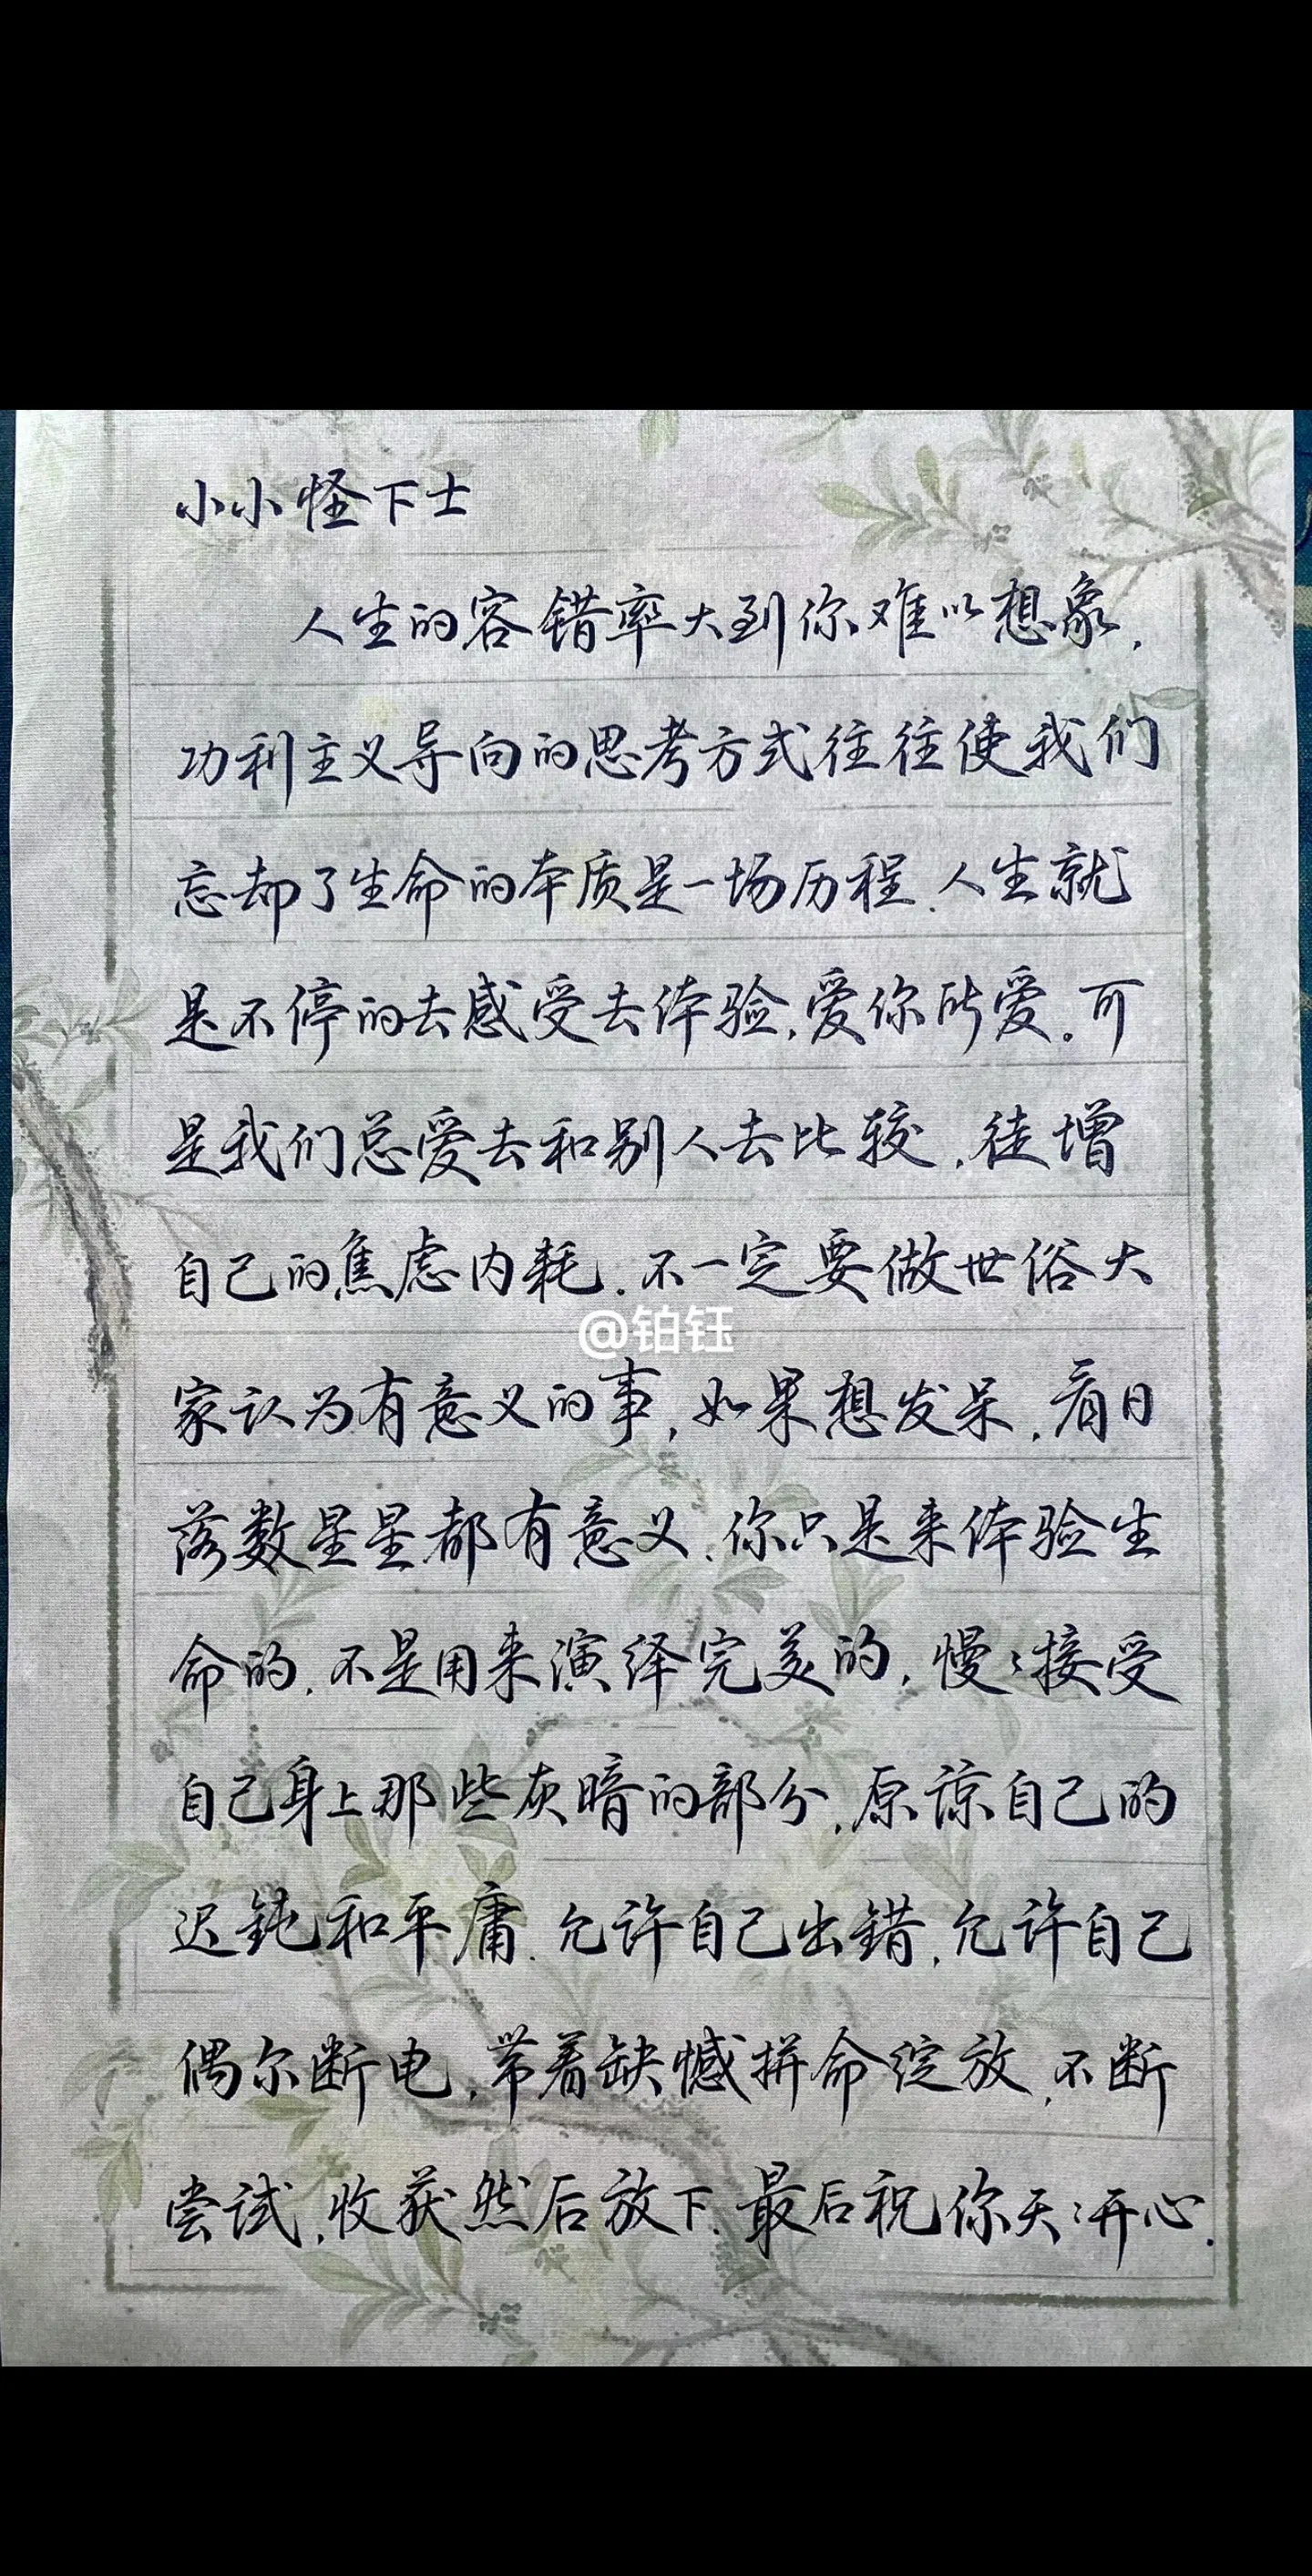 小小怪下士
人生的容错率大到你难以想象.
功利主义导向的思考方式往往使我们
忘却了生命的本质是一场历程.人生就
是不停的去感受去体验.爱你所爱。可
是我们总爱去和别人去比较.徒增
自己的焦虑内耗.不一定要做世俗大
@铂钰
家认为有意义的事,如果想发呆.看日
落数星星都有意义.你只是来体验生
命的.不是用来演绎完美的,慢:接受
自己身上那些灰暗的部分.原谅自己的
迟钝和平庸.允许自己出错.允许自己
偶尔断电,带着缺憾拼命绽放,不断
尝试,收获然后放下.最后祝你天:开心.